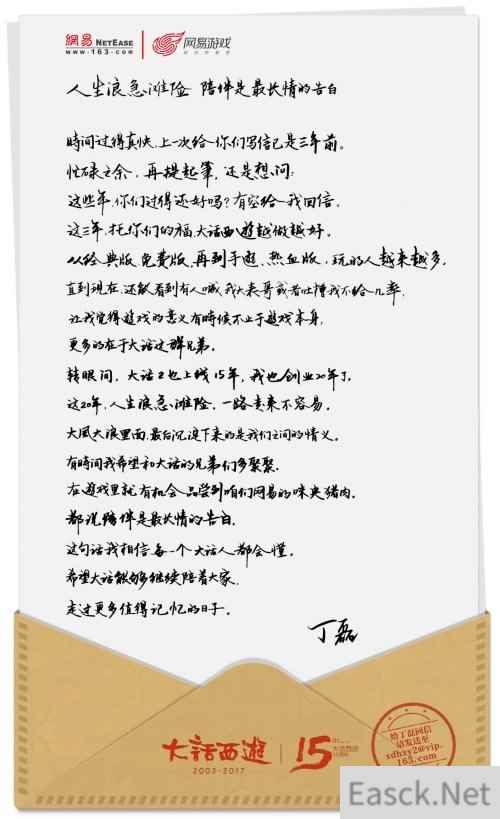 網易 NETEASE
www.163.com
网易游戏
人生浪急滩险 陪伴是最长情的告白
時间过得真快,上一次给你们写信已是三年前。
忙碌之余,再提起筆,还是想问:
这些年,你们过得还好吗?有空给我回信。
这三年,托你们的福,大话西遊越做越好。
从经典版,免费版,再到手遊,热血版,玩的人越来越多。
直到现在,还能看到有人喊我丁老哥或者吐槽我不给几率,
让我觉得遊戏的意义有時候不止于遊戏本身,
更多的在于大话这群兄弟。
转眼间,大话2也上线15年,我也创业20年了。
这20年,人生浪急滩险,一路走来不容易,
大風大浪里面,最后沉淀下来的是我们之间的情义。
有時间我希望和大话的兄弟们多聚聚,
在遊戏里就有机会品尝到咱们网易的味央猪肉。
都说陪伴是最长情的告白,
这句话我相信每一个大话人都会懂。
希望大话能够继续陪着大家,
走过更多值得记忆的日子。
丁磊
大话西遊
2002-2017
15
给丁磊回信
请发送至
xdhxy2@vip.
163.com
Easck.Net